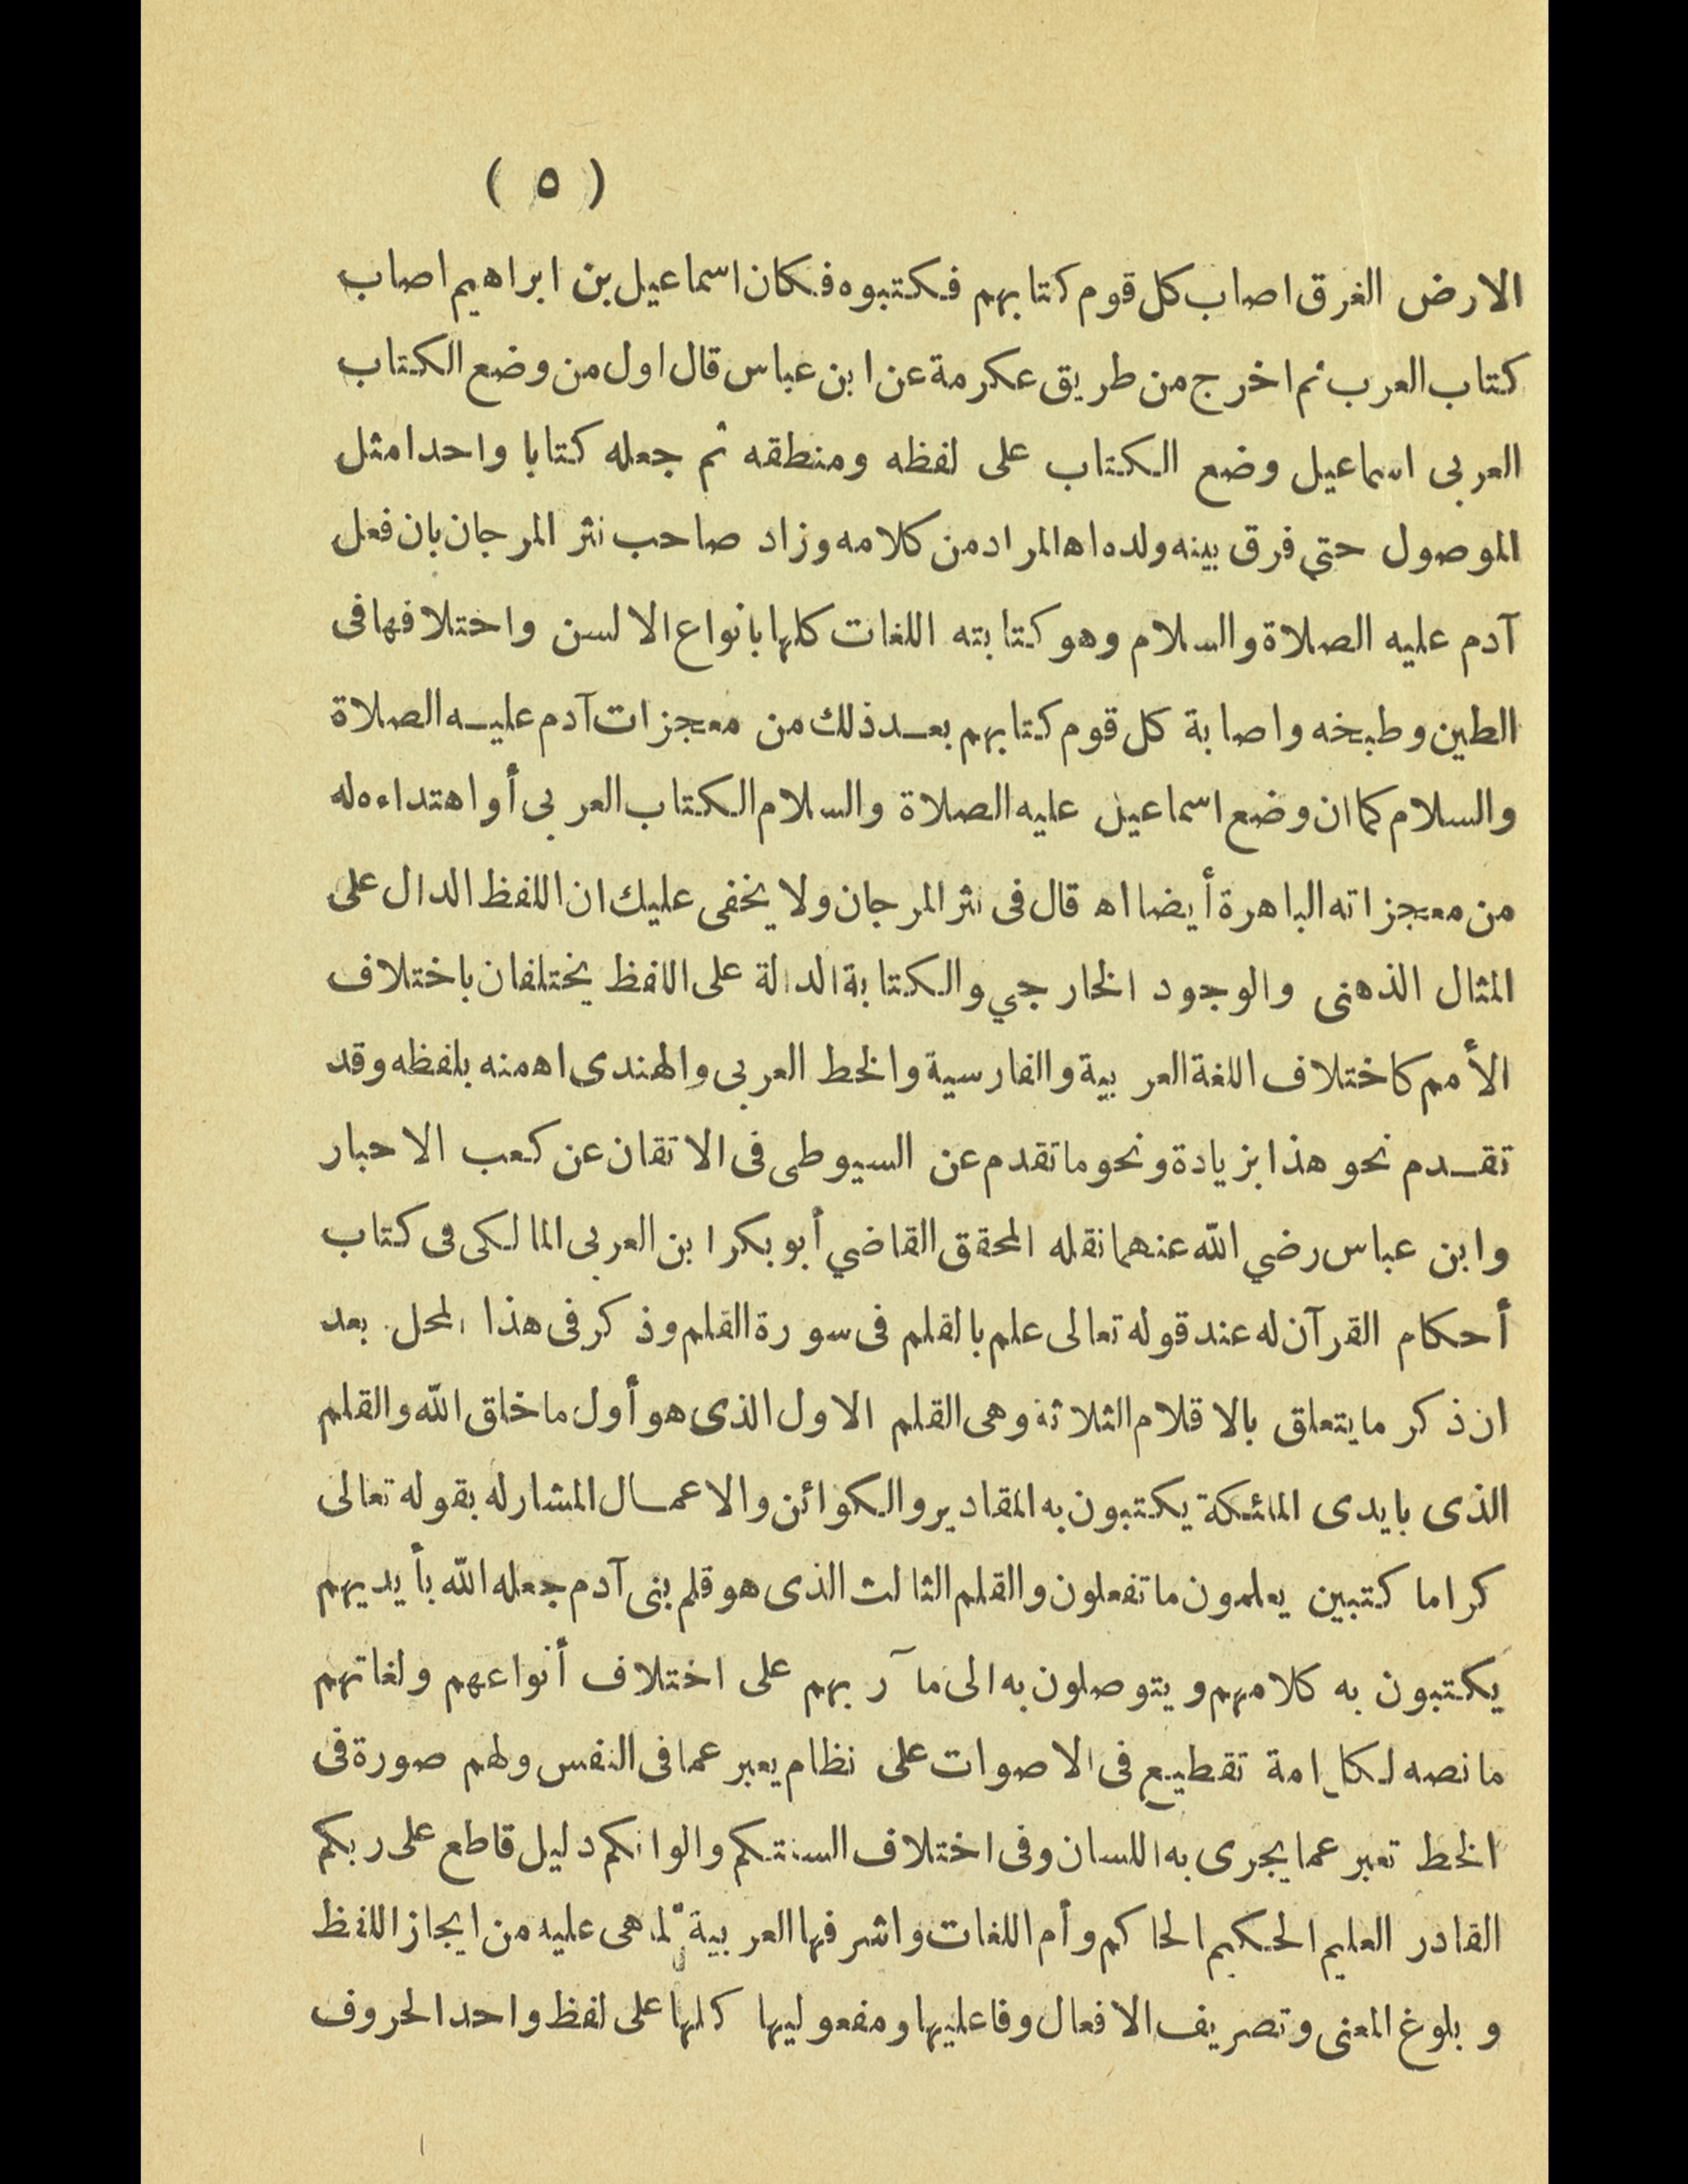 ( ٥ )
الارض الغرق اصاب كل قوم كتابهم فكتبوه فكان اسماعيل بن ابراهيم اصاب
كتاب العرب ثم اخرج من طريق عكرمة عن ابن عباس قال اول من وضع الكتاب
العربى اسماعيل وضع الكتاب على لفظه ومنطقه ثم جعله كتابا واحدا مثل
الموصول حتى فرق بينه ولده اه المراد من كلامه وزاد صاحب نثر المرجان بان فعل
آدم عليه الصلاة والسلام وهو كتابته اللغات كلها بانواع الالسن واختلافها فى
الطين وطبخه واصابة كل قوم كتابهم بعد ذلك من معجزات آدم عليه الصلاة
والسلام كما ان وضع اسماعيل عليه الصلاة والسلام الكتاب العربى أو اهتداءه له
من معجزاته الباهرة أيضا اه قال فى نثر المرجان ولا يخفى عليك ان اللفظ الدال على
المثال الذهنى والوجود الخارجي والكتابة الدالة على اللفظ يختلفان باختلاف
الأمم كاختلاف اللغة العربية والفارسية والخط العربى والهندى اه منه بلفظه وقد
تقدم نحو هذا بزيادة ونحو ما تقدم عن السيوطى فى الاتقان عن كعب الاحبار
وابن عباس رضي الله عنهما نقله المحقق القاضي أبو بكر ابن العربى المالكى فى كتاب
أحكام القرآن له عند قوله تعالى علم بالقلم فى سورة القلم وذكر فى هذا المحل بعد
ان ذكر ما يتعلق بالاقلام الثلاثة وهى القلم الاول الذى هو أول ما خلق الله والقلم
الذى بايدى الملئكة يكتبون به المقادير والكوائن والاعمال المشار له بقوله تعالى
كراما كتبين يعلمون ما تفعلون والقلم الثالث الذى هو قلم بنى آدم جعله الله بأيديهم
يكتبون به كلامهم ويتوصلون به الى مآربهم على اختلاف أنواعهم ولغاتهم
ما نصه لكل امة تقطيع فى الاصوات على نظام يعبر عما فى النفس ولهم صورة فى
الخط تعبر عما يجرى به اللسان وفى اختلاف السنتكم والوانكم دليل قاطع على ربكم
القادر العليم الحكيم الحاكم وأم اللغات واشرفها العربية لما هى عليه من ايجاز اللفظ
و بلوغ المعنى وتصريف الافعال وفاعليها ومفعوليها كلها على لفظ واحد الحروف